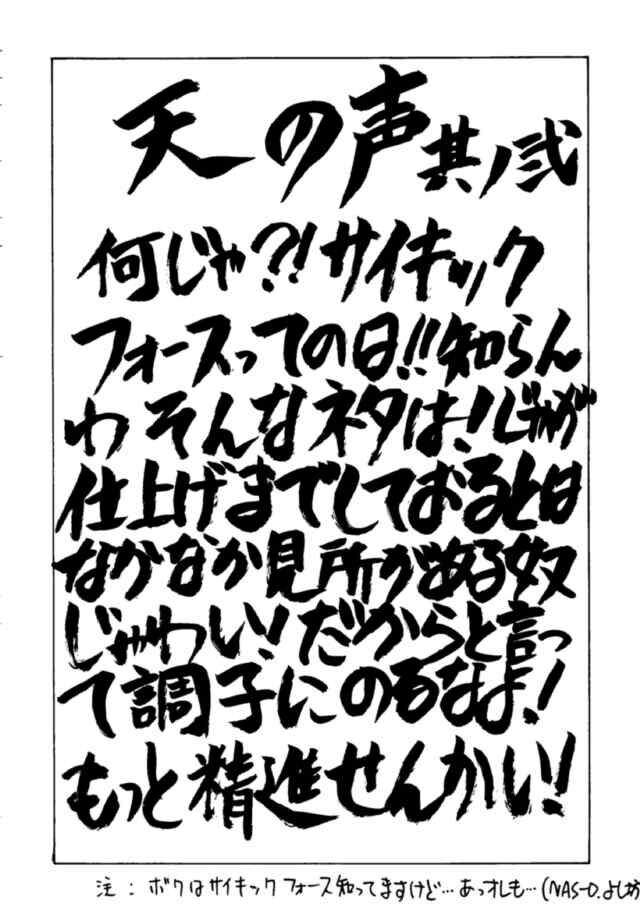 天の声其ノ弐
何じゃ?!サイキック
フォースってのは!!知らん
わそんなネタは!じゃが
仕上げまでしておるとは
なかなか見所がある奴
じゃわい!だからと言っ
て調子にのるなよ!
もっと精進せんかい!
注:ボクはサイキックフォース知ってますけど…あっオレも…(NAS-O.よし